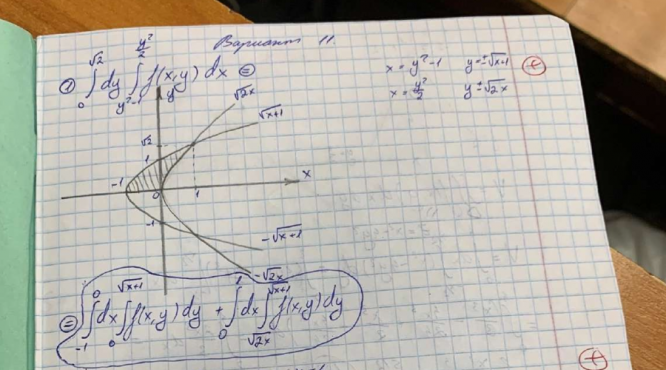 Вариант 11.
① ∫₀^√2 dy ∫_{y²-1}^{y²/2} f(x,y) dx ⊜
x = y²-1 y = ±√x+1
x = y²/2 y = ±√2x
+
y
√2x
√x+1
√2
1
-1 0 1 x
-1
-√x+1
-√2x
⊜ ∫₋₁^0 dx ∫₀^√x+1 f(x,y) dy + ∫₀^1 dx ∫_{√2x}^{√x+1} f(x,y) dy
+